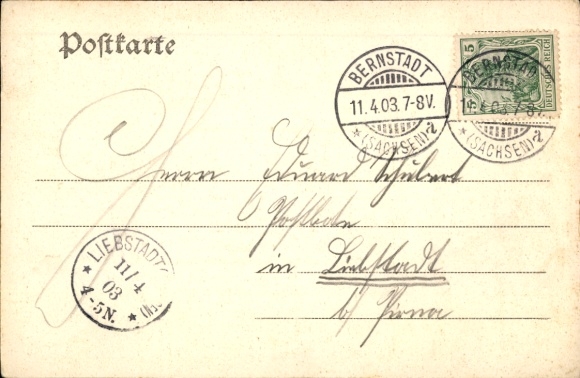 Postkarte
BERNSTADT
11.4.03.7-8V.
* (SACHSEN) 2
5
DEUTSCHES REICH
BERNSTADT
11.4.03.7-8V.
* (SACHSEN) 2
Herrn Eduard Schubert
Postbote
in Liebstadt
b/ Pirna
* LIEBSTADT
11/4
03
4-5N. *